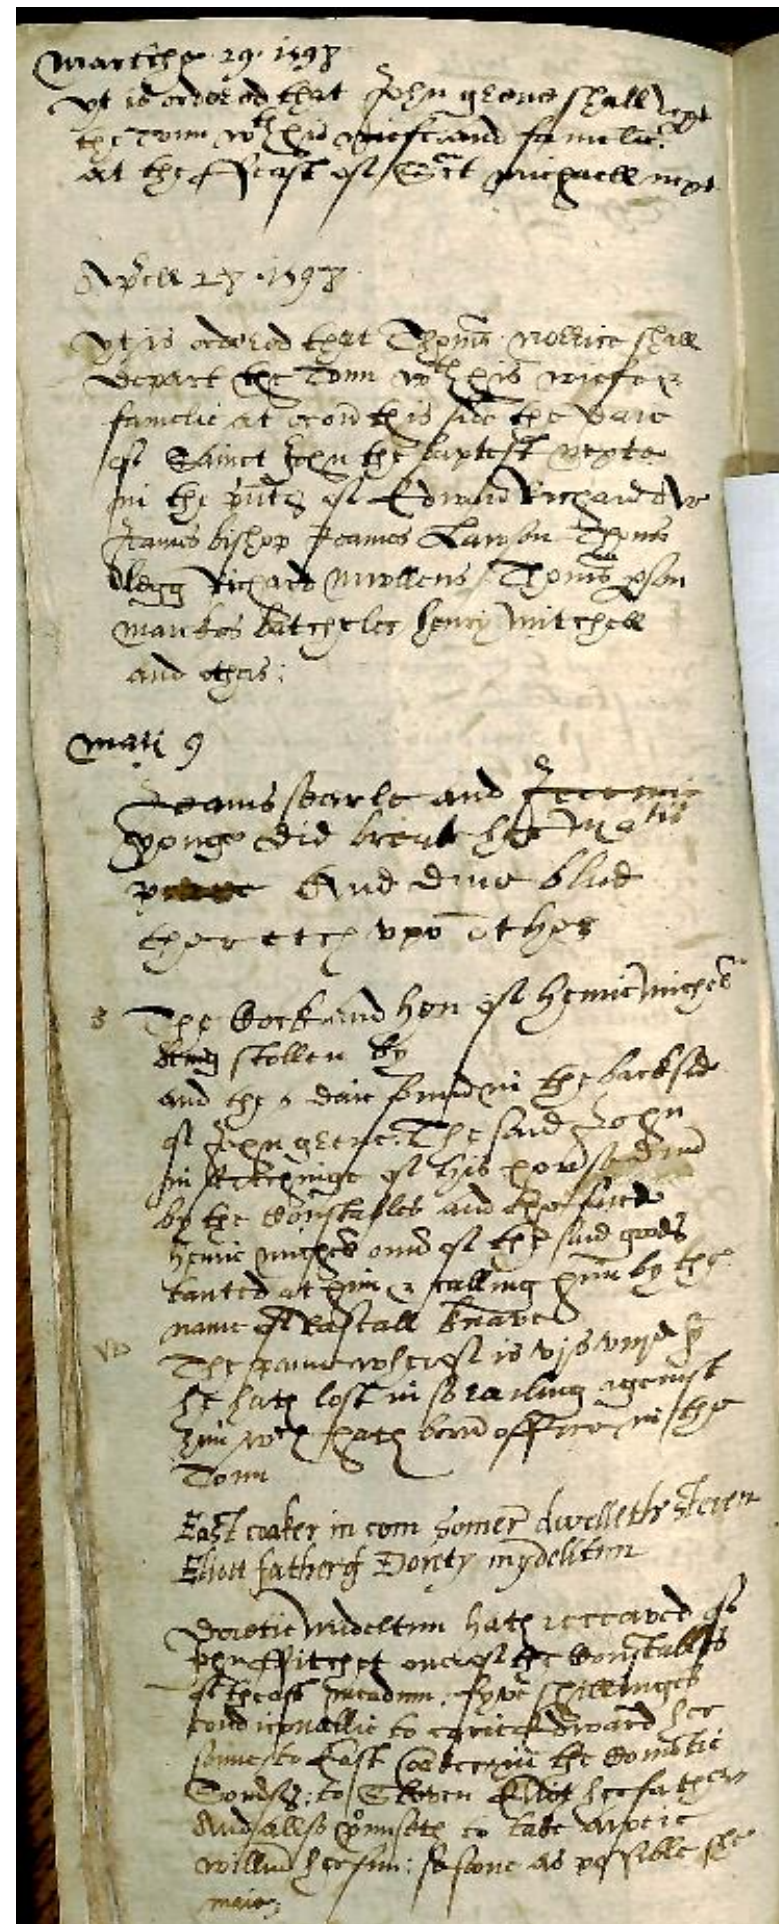 Marche 29 1598
yt is ordered that John grene shall
the Town wth his wiefe and famelie
at the ffeast of Sct Michaell next
Aprell 28 1598
yt is ordered that Thoms shall
depart the Town wth his wiefe &
famelie at or on this side the daie
of Sainct John the baptest nexte
in the pntz of Edward Richardes
James bishop Jeames Lawson Thoms
Clegg Richard Mullens Thoms
Markes batcheler henry Mitchell
and others:
Maii 9
Jeams searle and
yonge did breake her Matis
peace And drue blud
there ech upo other
The Cock and hen of Henrie Miche
stollen by
and the 9 daie found in the backside
of John grene. The said John
in of his howse
by the Constables and the said
Henrie of the said goods
tanted at him & calling him by the
name of Rascall knave
The paine wherof is vjs viijd
he hath lost in so railing against
him wch hath born office in the
Town
East coaker in com Somer dwelleth Steven
Eliott father of Dorety mydeltun
Doretie Mideltun hath receaved of
John ffitchet one of the Constables
fyve shillinges
condicionallie to carie Edward her
sonne to East Coker in the
to Steven Eliot her father
And allso pmiseth to take awaie
willm her sun: so sone as possible she
maie: